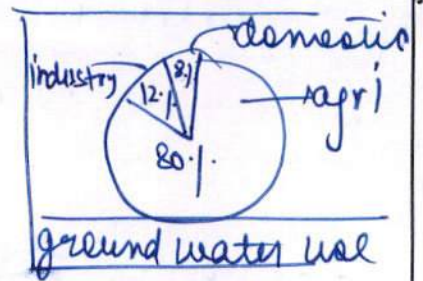 domestic
industry
8%
12%
agri
80%
ground water use